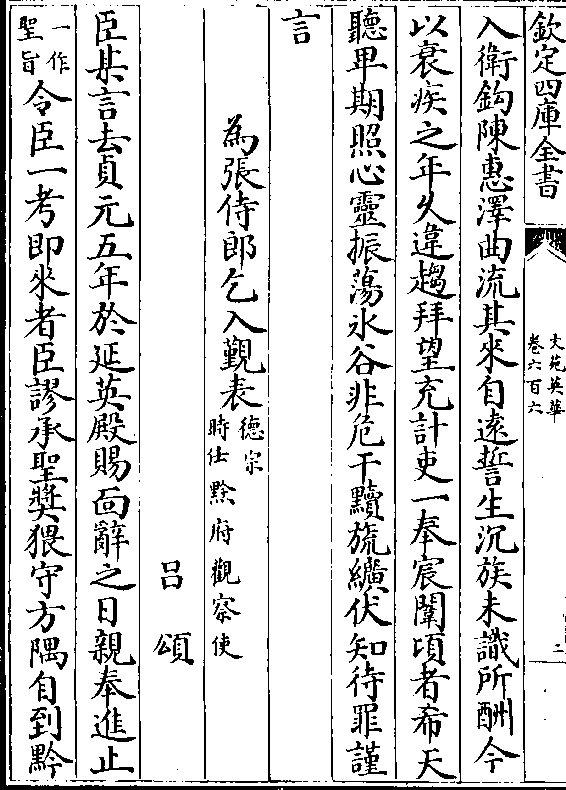 欽定四庫全書
文苑英華
卷六百六
二
入衛鈎陳惠澤曲流其來自遠誓生沉族未識所酬今
以衰疾之年久違趨拜望充計吏一奉宸闈頃者希天
聽卑期照心靈振蕩氷谷非危干黷旒纊伏知待罪謹
言
為張侍郎乞入覲表德宗時仕黔府觀察使
吕頌
臣某言去貞元五年於延英殿賜面辭之日親奉進止
一作聖旨令臣一考即來者臣謬承聖奬猥守方隅自到黔